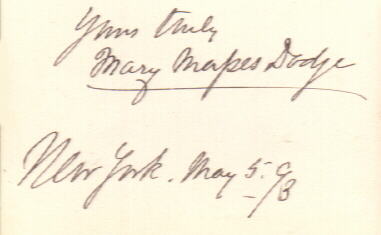 Yours truly
Mary Mapes Dodge
New York. May 5. 93